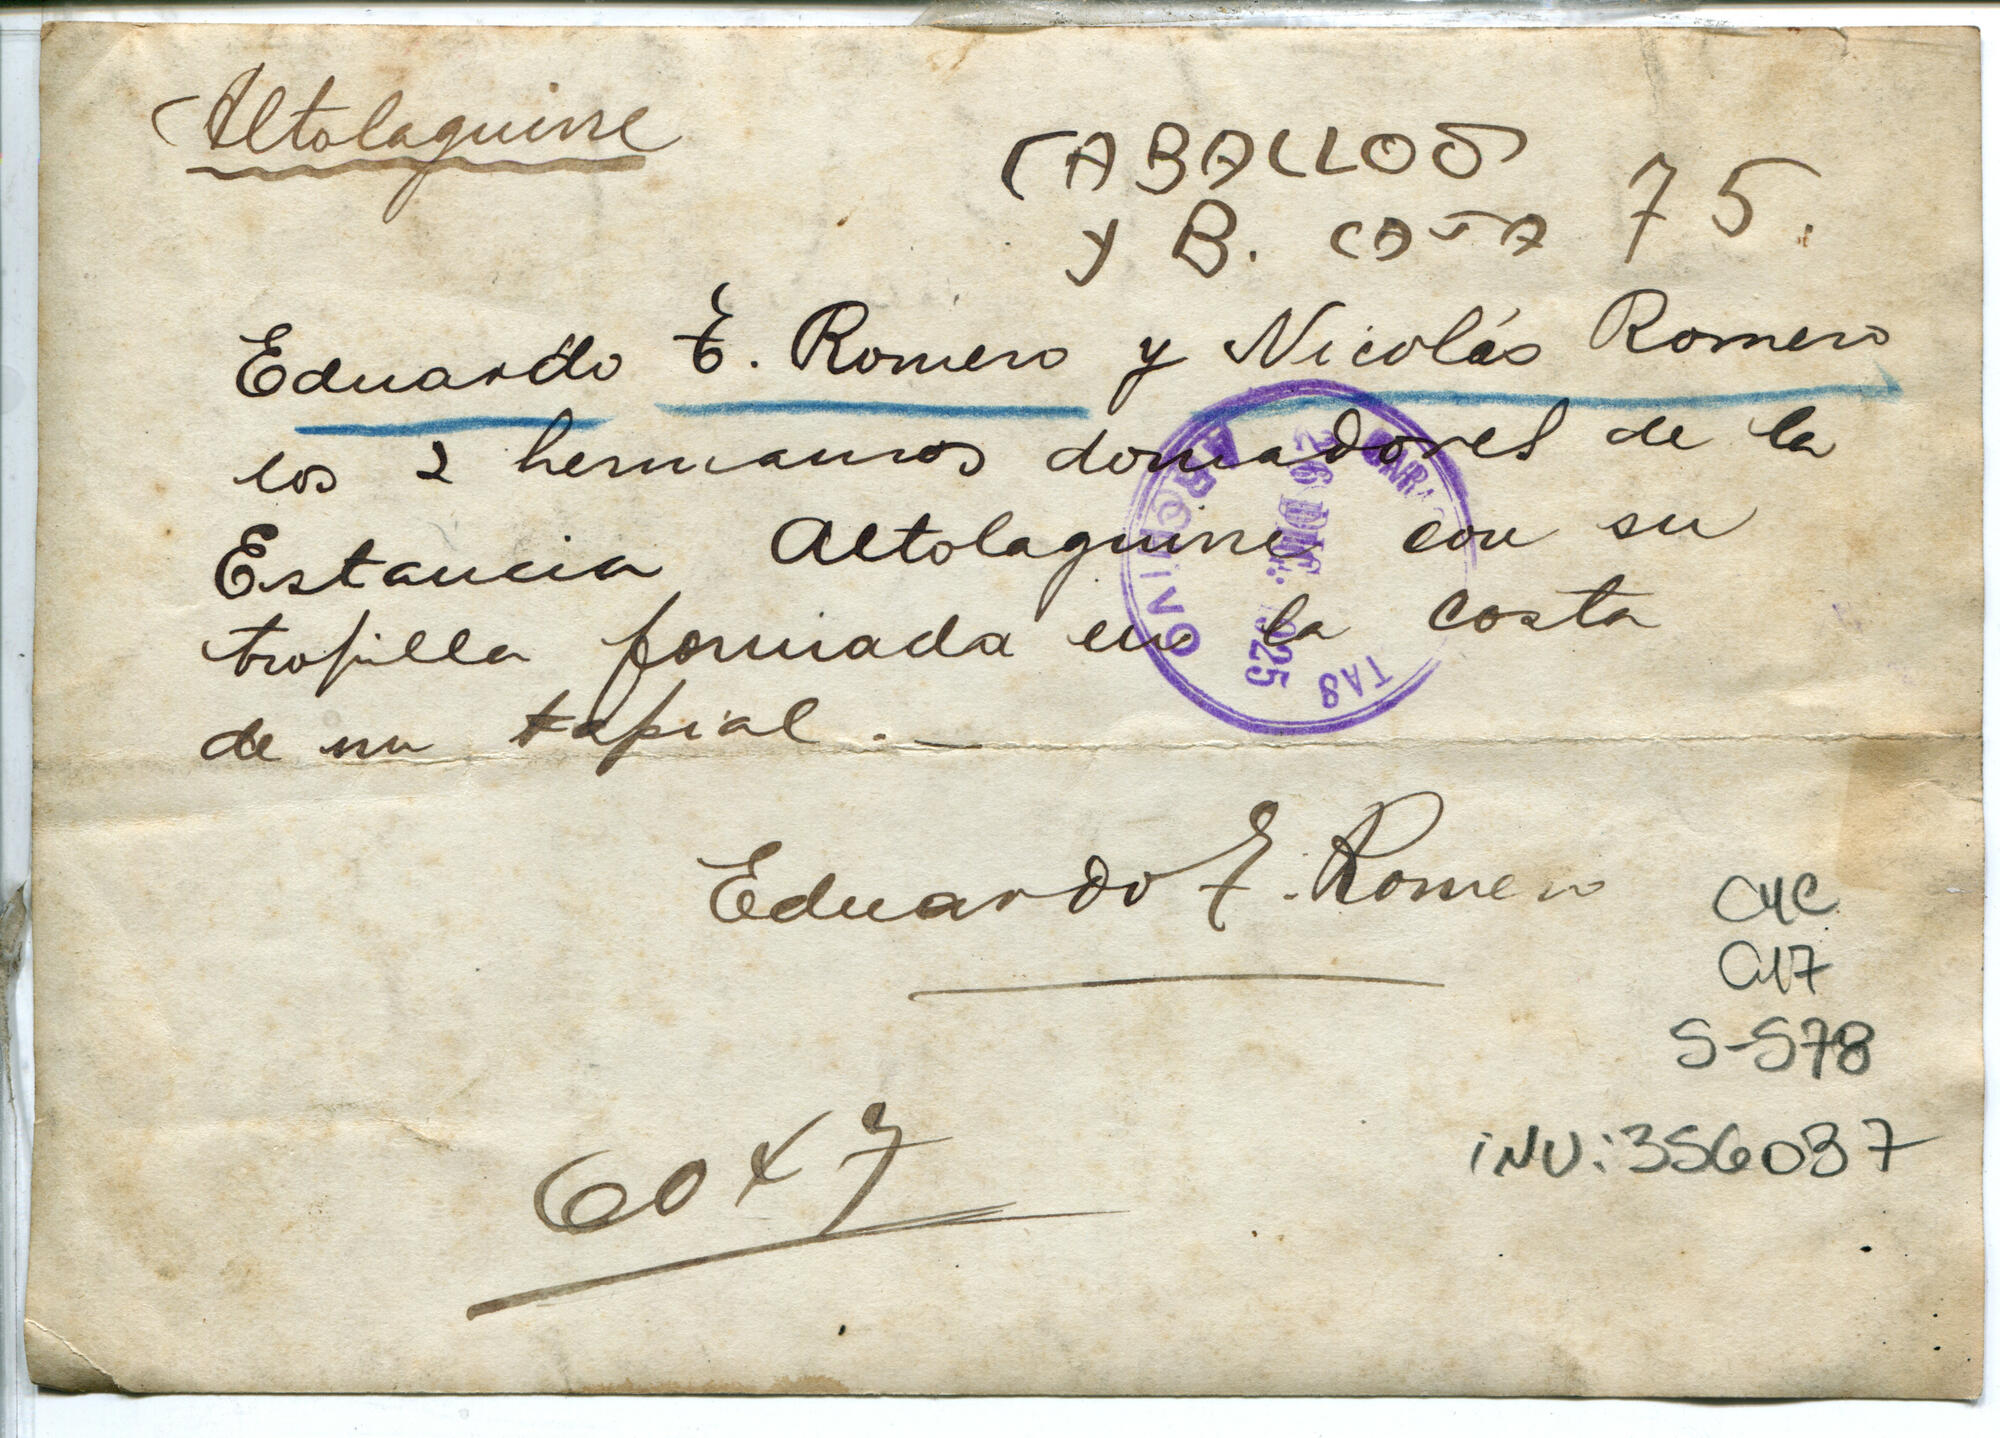 Altolaguirre
CABALLOS 75.
y B. CATA
Eduardo E. Romero y Nicolás Romero
los 2 hermanos domadores de la
Estancia Altolaguirre con su
tropilla formada en la costa
de un tapial.
ARCHIVO
26 DIC. 1925
TAS
Eduardo E. Romero
C4C
C17
S-578
60 x 7
iNV: 356087